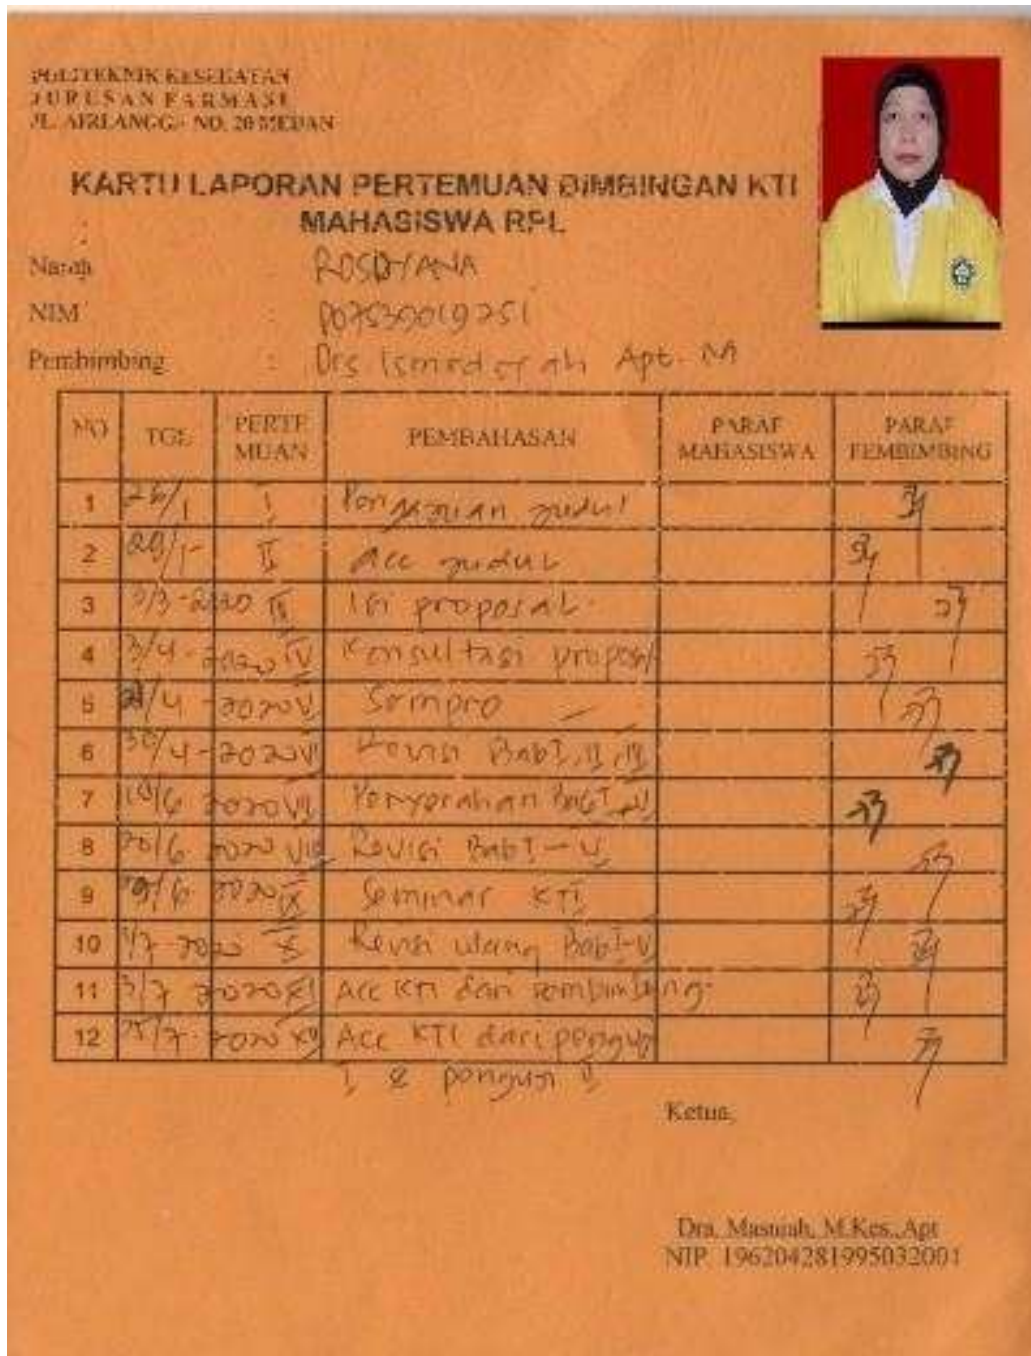 POLITEKNIK KESEHATAN
JURUSAN FARMASI
JL. AIRLANGGA NO. 20 MEDAN
KARTU LAPORAN PERTEMUAN BIMBINGAN KTI
MAHASISWA RPL
Nama : ROSDYANA
NIM : P07539019251
Pembimbing : Drs Ismedsyah Apt. M
NO TGL PERTE MUAN PEMBAHASAN PARAF MAHASISWA PARAF PEMBIMBING
1 I Pengajuan judul
2 II Acc judul
3 III Isi proposal
4 3/4-2020 IV Konsultasi proposal
5 /4-2020 V Sempro
6 30/4-2020 VI Revisi Bab I, II, III
7 2020 VII Penyerahan Bab I
8 /6 2020 VIII Revisi Bab I - V
9 /6 2020 IX Seminar KTI
10 1/7 2020 X Revisi ulang Bab I-V
11 3/7 2020 XI Acc KTI dari pembimbing
12 /7-2020 XII Acc KTI dari penguji
I & penguji II
Ketua,
Dra. Masniah, M.Kes., Apt
NIP. 196204281995032001